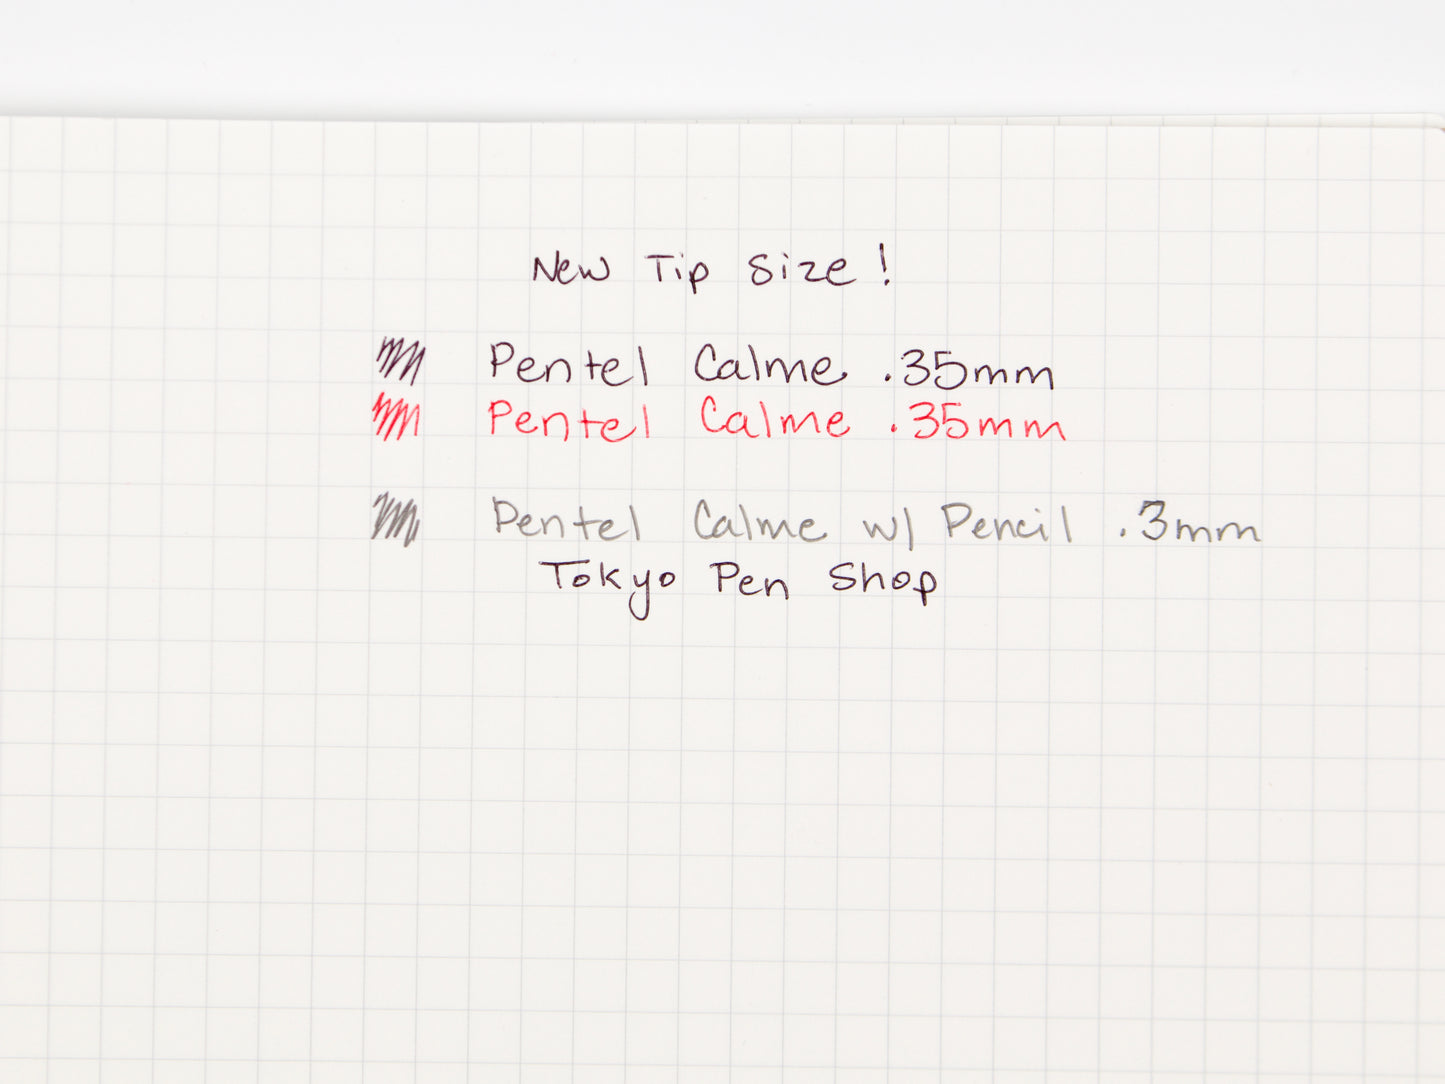 New Tip Size!
Pentel Calme .35mm
Pentel Calme .35mm
Pentel Calme w/ Pencil .3mm
Tokyo Pen Shop